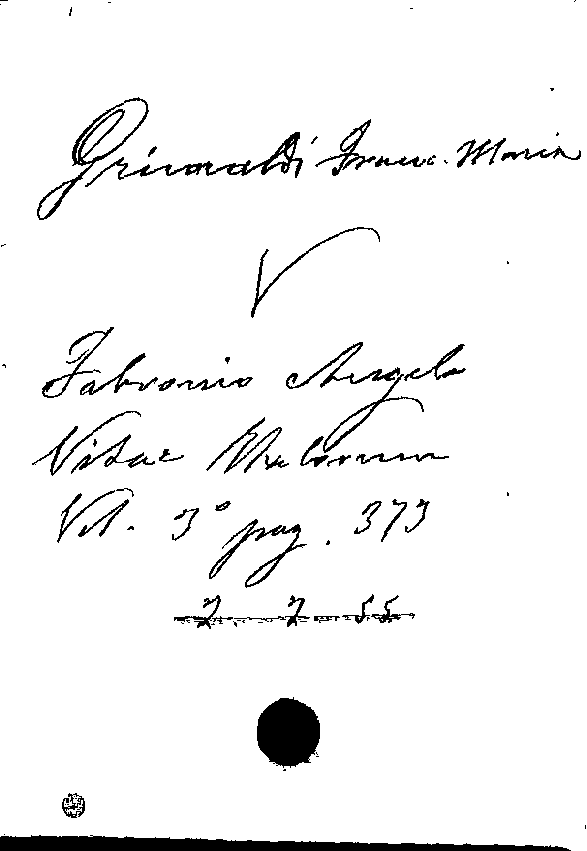 Grimaldi Franc. Maria
V
Fabronio Angelo
Vitae Italorum
Vol. 3° pag. 373
2. 2 55